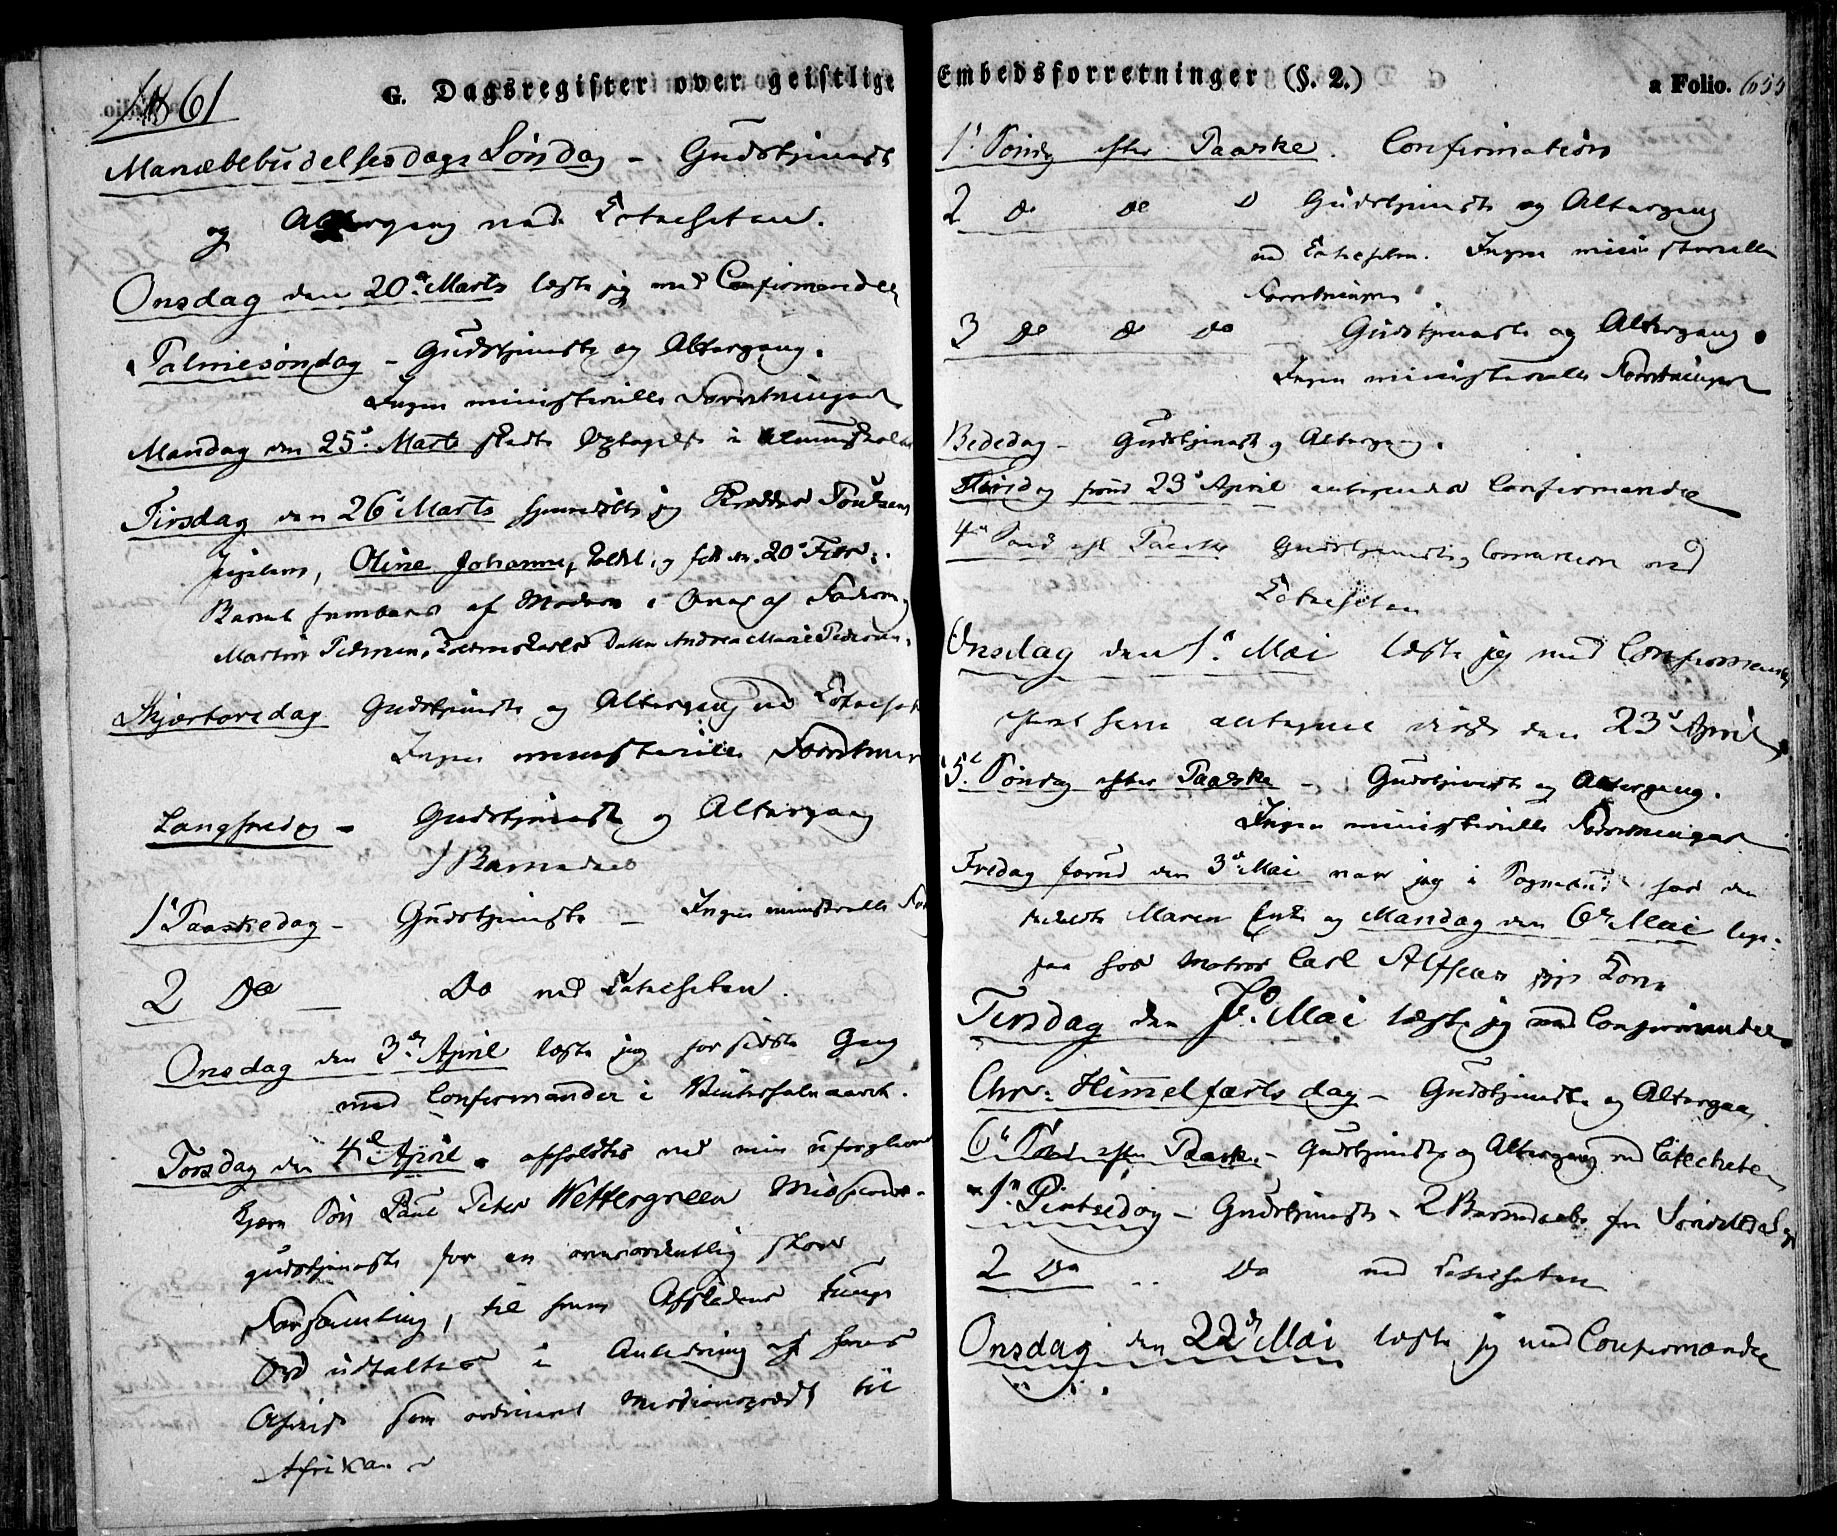 1861
G. Dagsregister over geistlige Embedsforretninger (§. 2.)
a Folio. 655
Mariæbebudelsesdags Søndag - Gudstjeneste
og Altergang ved Catecheten.
Onsdag den 20de Marts læste jeg med Confirmander
Palmesøndag - Gudstjeneste og Altergang.
Ingen ministerielle Forretninger
Mandag den 25de Marts Optagelse i Almueskolen
Tirsdag den 26de Marts hjemmedøbte jeg
Oline Johanne, født den 20de Febr:
Barnet frembaaret af Moderen
Martin Pedersen, Andrea Marie Pedersen.
Skjærtorsdag Gudstjeneste og Altergang ved Catechet
Ingen ministerielle Forretninger
Langfredag - Gudstjeneste og Altergang
1 Barnedaab
1ste Paaskedag - Gudstjeneste - Ingen ministerielle
2 Do - Do ved Catecheten.
Onsdag den 3die April læste jeg for sidste Gang
med Confirmander i Vinterhalvaaret.
Torsdag den 4de April afholdtes ved min uforglem
kjære Søn Paul Peter Wettergreen Missions-
gudstjeneste for en overordentlig stor
Forsamling, til hvem Afskedens
Ord udtaltes i Anledning af hans
Afreise som ordineret Missionsprest til
Afrika.
1ste Søndag efter Paaske. Confirmation
2 do do do Gudstjeneste og Altergang
ved Catecheten. Ingen ministerielle
Forretninger.
3 do do do Gudstjeneste og Altergang.
Ingen ministerielle Forretninger
Bededag - Gudstjeneste og Altergang.
Tirsdag forud 23de April antegnedes Confirmander
4de Sønd eft Paaske Gudstjeneste og Communion ved
Catecheten
Onsdag den 1ste Mai læste jeg med Confirmander
antegnet den 23de April
5te Søndag efter Paaske - Gudstjeneste og Altergang.
Ingen ministerielle Forretninger
Fredag forud den 3die Mai var jeg i Sognebud hos den
Maren og Mandag den 6te Mai lige-
saa hos Matros Carl
Tirsdag den Mai læste jeg med Confirmander.
Chr: Himmelfartsdag - Gudstjeneste og Altergang
6te Sønd efter Paaske - Gudstjeneste og Altergang ved Catecheten
1ste Pintsedag - Gudstjeneste - 2 Barnedaab fra
2 Do .. Do ved Catecheten
Onsdag den 22de Mai læste jeg med Confirmander